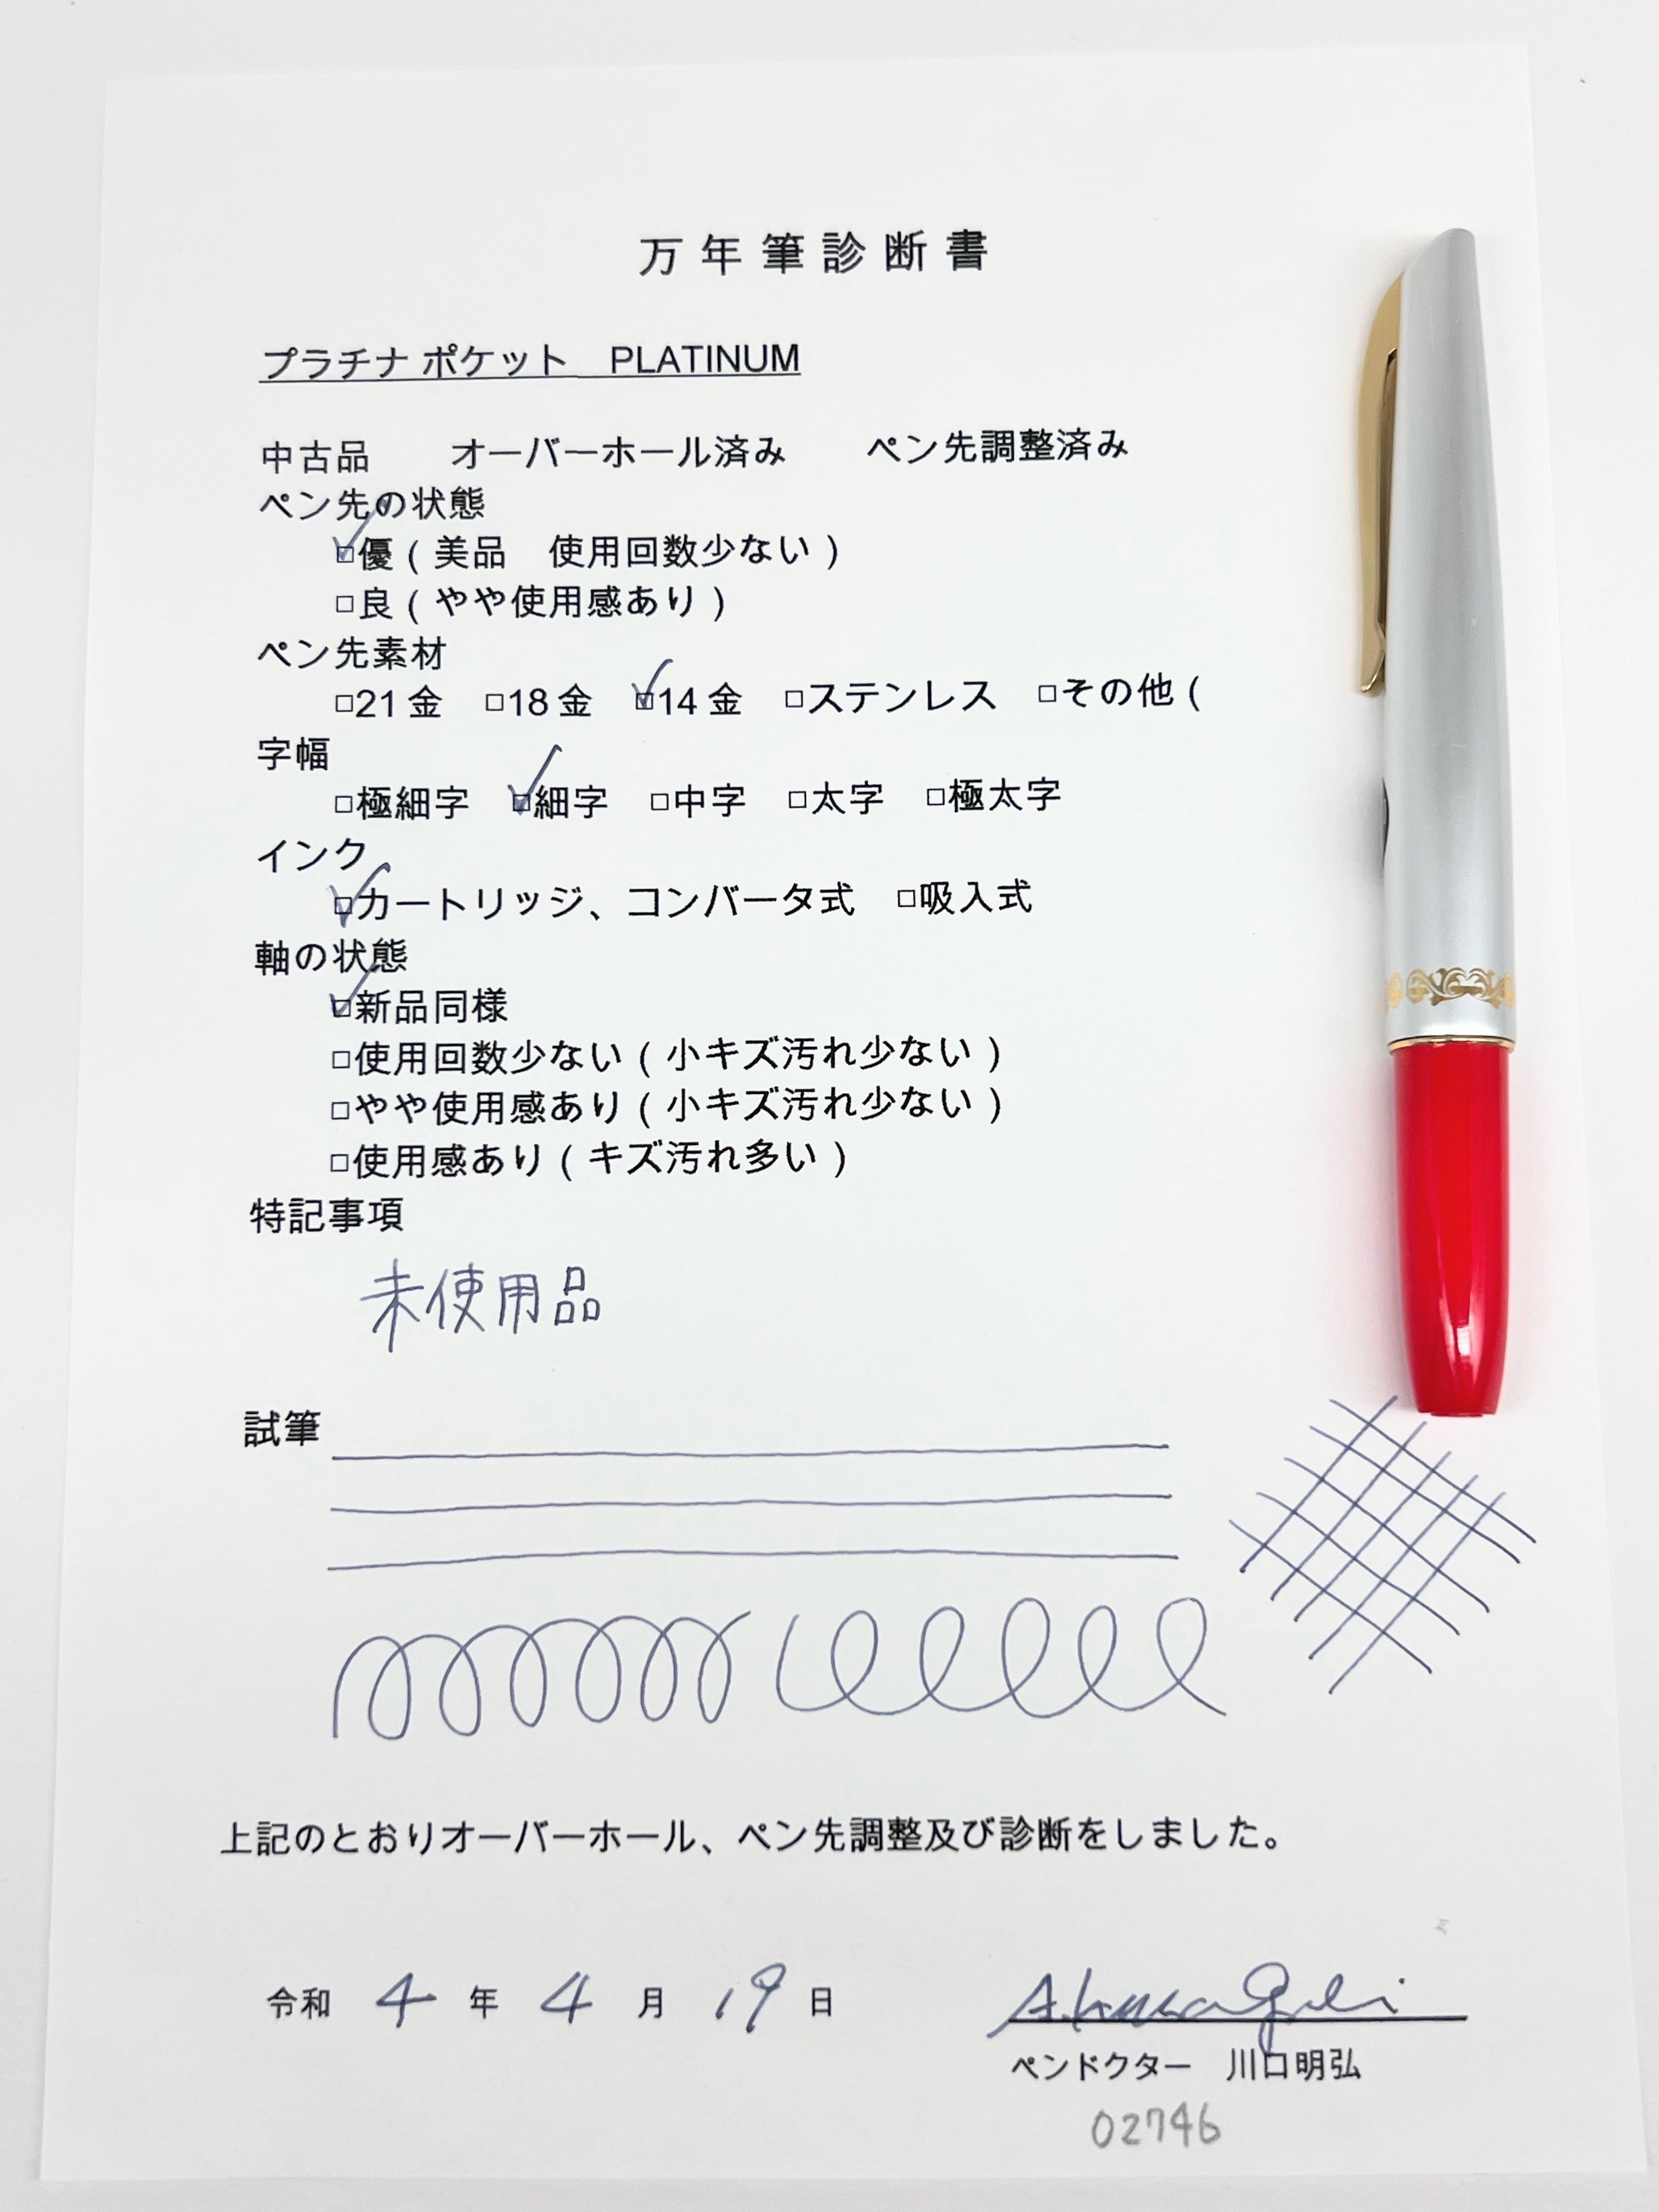 万年筆診断書
プラチナ ポケット　PLATINUM
中古品　　オーバーホール済み　　ペン先調整済み
ペン先の状態
☑優(美品　使用回数少ない)
□良(やや使用感あり)
ペン先素材
□21金　□18金　☑14金　□ステンレス　□その他(
字幅
□極細字　☑細字　□中字　□太字　□極太字
インク
☑カートリッジ、コンバータ式　□吸入式
軸の状態
☑新品同様
□使用回数少ない(小キズ汚れ少ない)
□やや使用感あり(小キズ汚れ少ない)
□使用感あり(キズ汚れ多い)
特記事項
未使用品
試筆
上記のとおりオーバーホール、ペン先調整及び診断をしました。
令和　4　年　4　月　19　日
A.Kawaguchi
ペンドクター　川口明弘
02746